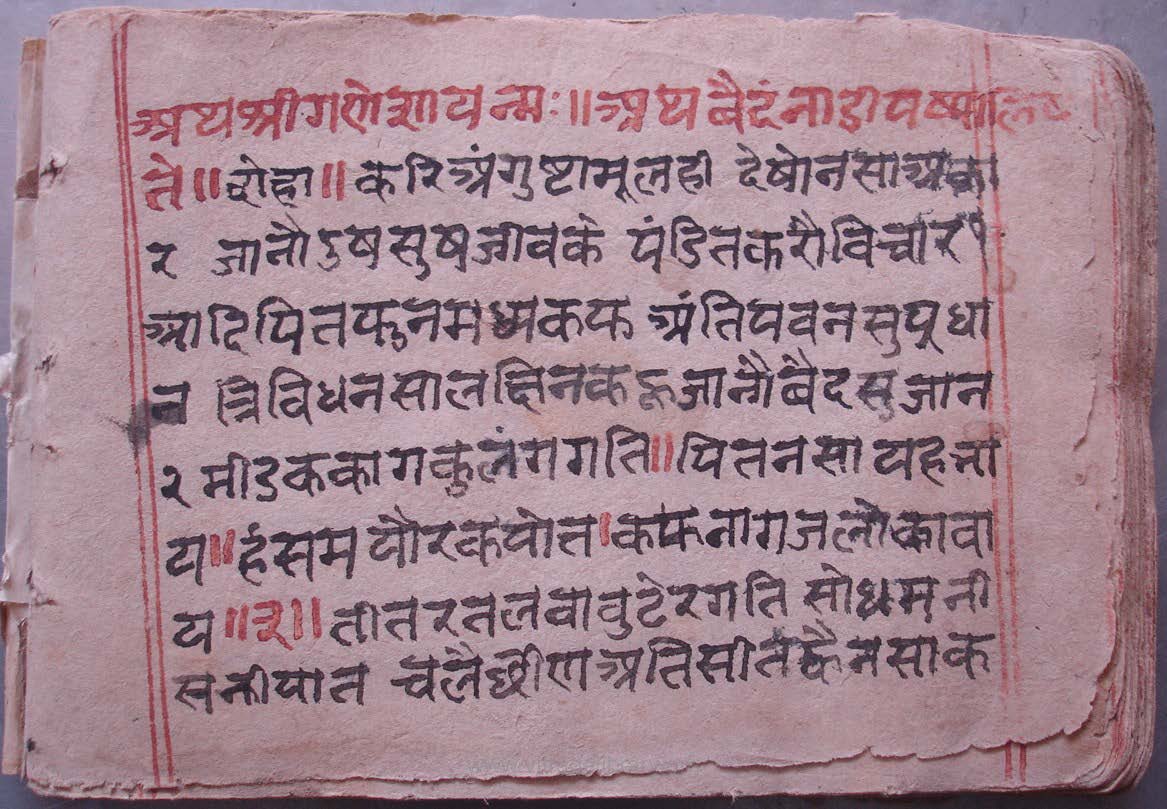 अथ श्री गणेशाय न्मः॥ अथ बैदं नाडी पष्पा लिष्य
ते॥ दोहा॥ करि अंगुष्टा मूल ही देषो नसा अका
र जानौ ऽष सुष जीव के पंडित करौ विचार १
आदि पित फुन मध्य कफ अंति पवन सु प्रधा
न त्रिविध नसा लछिन कहू जानौ बैद सुजान
२ मीडक काग कुलंग गति॥ पित नसा यह जा
य॥ हंस मयौर कपोत। कफ नाग जलोका वा
य॥३॥ तीतर तलवा वुटेर गति सो धमनी
सनीपात चलै छीण अति सीत ह्वै नसा क